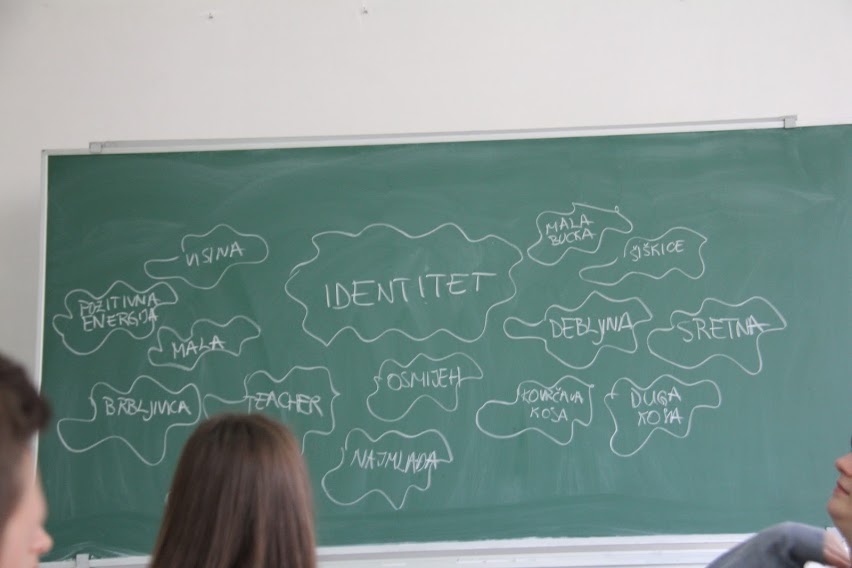 IDENTITET
VISINA
MALA
BUCKA
ŠIŠKICE
POZITIVNA
ENERGIJA
MALA
DEBLJINA
SRETNA
BRBLJIVICA
TEACHER
OSMIJEH
KOVRČAVA
KOSA
DUGA
KOSA
NAJMLAĐA